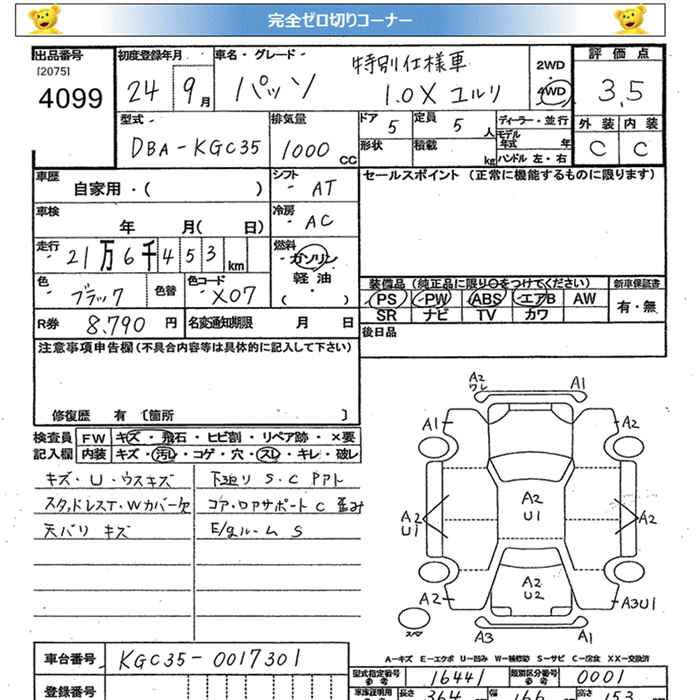 完全ゼロ切りコーナー
出品番号
[2075]
4099
初度登録年月
24 9月
車名・グレード・
パッソ
特別仕様車
1.0X ユルリ
2WD
4WD
評価点
3.5
外装 内装
C C
型式・
DBA-KGC35
排気量
1000 CC
ドア 5
定員 5 人
形状
積載 kg
ディーラー・並行
モデル年式 年
ハンドル 左・右
車歴
自家用・( )
シフト
・ AT
セールスポイント (正常に機能するものに限ります)
車検
年 月( 日)
冷房
・ AC
走行
・ 21万6千453 km
燃料
・ガソリン
軽油
・( )
色
・ブラック
色替
色コード
・X07
装備品 (純正品に限り○をつけてください)
PS ・PW ABS ・エアB AW
SR ナビ TV カワ
新車保証書
有・無
R券 8,790 円
名変通知期限 月 日
後日品
注意事項申告欄(不具合内容等は具体的に記入して下さい)
修復歴 有 [箇所 ]
検査員
記入欄
FW キズ・飛石・ヒビ割・リペア跡・×要
内装 キズ・汚レ・コゲ・穴・スレ・キレ・破レ
キズ・U・ウスキズ
スタッドレスT・Wカバー欠
天バリ キズ
下廻り S・C PPト
コア・ロアサポート C 歪み
E/gルーム S
A2
ワレ
A1
A1
A2
A2
U1
A2
U1
A2
A2
U2
A2
A3U1
スペア
A3
A1
車台番号 KGC35-0017301
A－キズ E－エクボ U－凹み W－補修跡 S－サビ C－腐食 XX－交換済
型式指定番号
参考
16441
類別区分番号
参考
0001
登録番号
車庫証明用
参考
長さ 364
幅 166
高さ 153